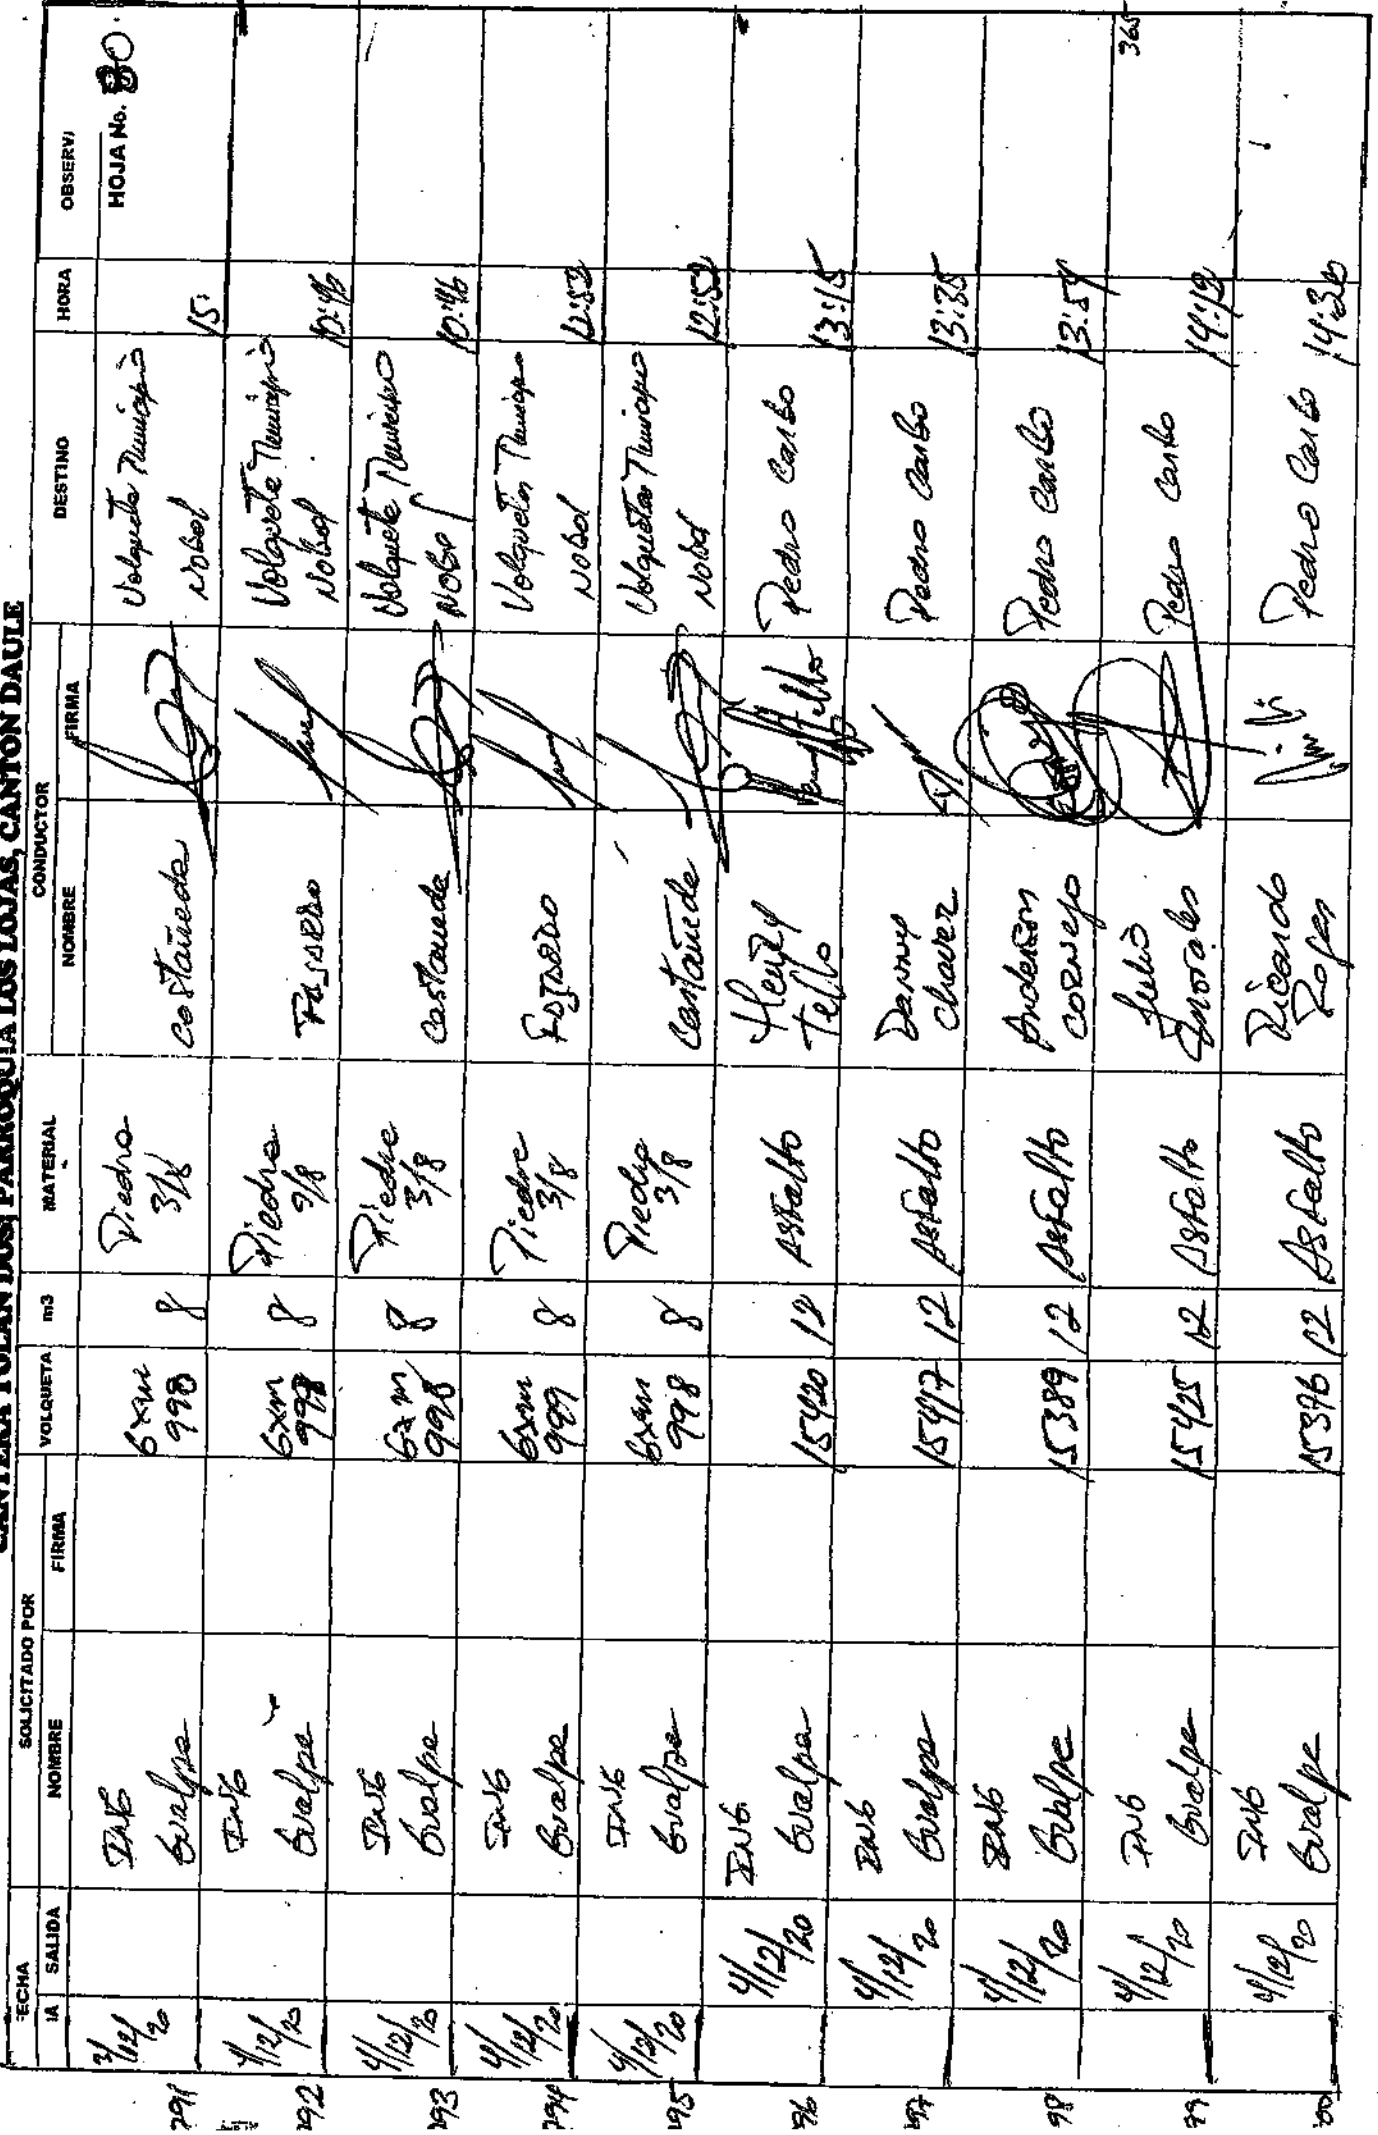 CANTERA TOLAN DOS, PARROQUIA LOS LOJAS, CANTON DAULE
FECHA SOLICITADO POR CONDUCTOR
IA SALIDA NOMBRE FIRMA VOLQUETA m3 MATERIAL NOMBRE FIRMA DESTINO HORA OBSERV
HOJA No. 80
791 3/12/20 ING Gualpa GXM 998 8 Piedra 3/8 Castañeda Volqueta Municipio Nobol 15:
792 4/12/20 ING Gualpa GXM 8 Piedra 3/8 Volqueta Municipio Nobol 10:46
793 4/12/20 ING Gualpa GXM 998 8 Piedra 3/8 Castañeda Volqueta Municipio Nobol 10:46
794 4/12/20 ING Gualpa GXM 999 8 Piedra 3/8 Volqueta Municipio Nobol 12:52
795 4/12/20 ING Gualpa GXM 998 8 Piedra 3/8 Castañeda Volqueta Municipio Nobol 12:52
796 4/12/20 ING. Gualpa 15420 12 Asfalto Henry Tello Pedro Carbo 13:15
797 4/12/20 ING Gualpa 15417 12 Asfalto Danny Chavez Pedro Carbo 13:35
798 4/12/20 ING Gualpa 15389 12 Asfalto Anderson Cornejo Pedro Carbo 13:54
365
799 4/12/20 ING Gualpa 15425 12 Asfalto Julio Morales Pedro Carbo 14:12
800 4/12/20 ING Gualpa 15376 12 Asfalto Ricardo Pedro Carbo 14:30